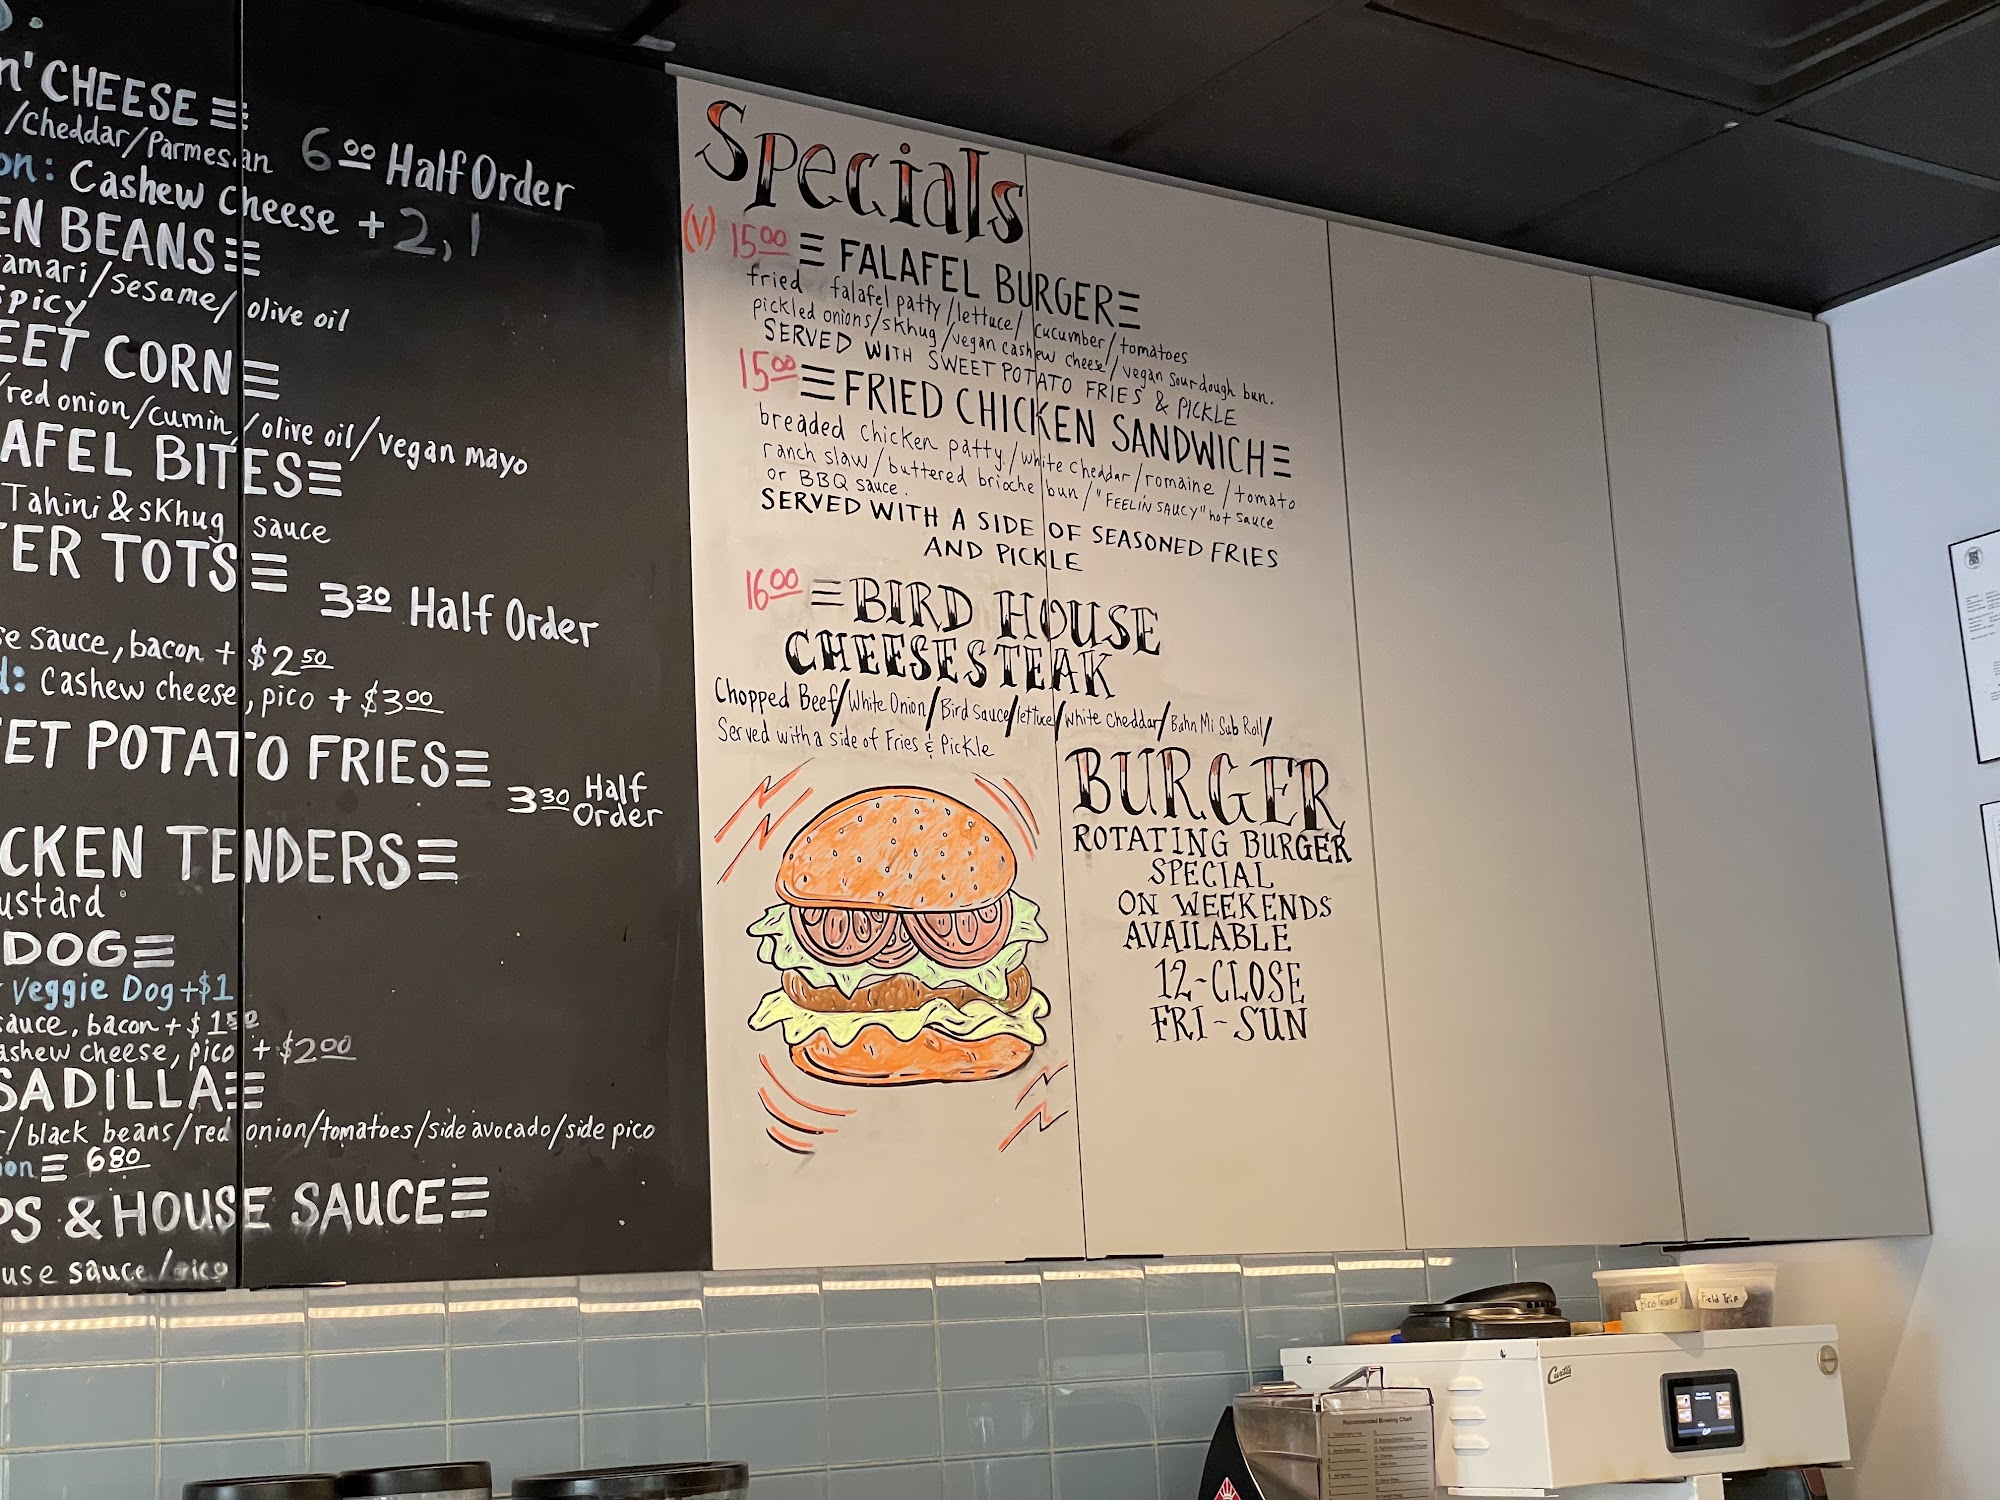 n' CHEESE
/Cheddar/Parmesan
6.00 Half Order
on: Cashew Cheese + 2, 1
EN BEANS
amari/sesame/olive oil
spicy
EET CORN
/red onion/cumin/olive oil/vegan mayo
AFEL BITES
Tahini & sKhug sauce
TER TOTS
3.30 Half Order
se sauce, bacon + $2.50
d: Cashew cheese, pico + $3.00
EET POTATO FRIES
3.30 Half Order
CKEN TENDERS
ustard
DOG
Veggie Dog +$1
sauce, bacon + $1.50
ashew cheese, pico + $2.00
SADILLA
/black beans/red onion/tomatoes/side avocado/side pico
ion 6.80
PS & HOUSE SAUCE
use sauce/pico
Specials
(V) 15.00 FALAFEL BURGER
fried falafel patty/lettuce/cucumber/tomatoes
pickled onions/skhug/vegan cashew cheese/vegan sourdough bun.
SERVED WITH SWEET POTATO FRIES & PICKLE
15.00 FRIED CHICKEN SANDWICH
breaded chicken patty/white cheddar/romaine/tomato
ranch slaw/buttered brioche bun/"FEELIN SAUCY" hot sauce
or BBQ sauce.
SERVED WITH A SIDE OF SEASONED FRIES
AND PICKLE
16.00 BIRD HOUSE
CHEESESTEAK
Chopped Beef/White Onion/Bird Sauce/lettuce/White Cheddar/Bahn Mi Sub Roll/
Served with a side of Fries & Pickle
BURGER
ROTATING BURGER
SPECIAL
ON WEEKENDS
AVAILABLE
12-CLOSE
FRI-SUN
Field Trip
Curtis
Recommended Brewing Chart